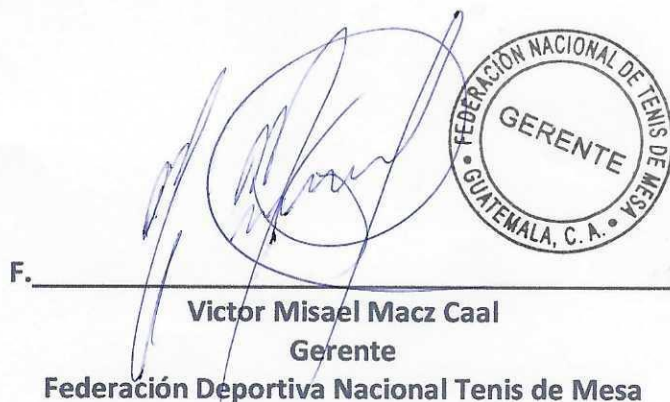 FEDERACIÓN NACIONAL DE TENIS DE MESA
GERENTE
• GUATEMALA, C. A. •
F.
Victor Misael Macz Caal
Gerente
Federación Deportiva Nacional Tenis de Mesa